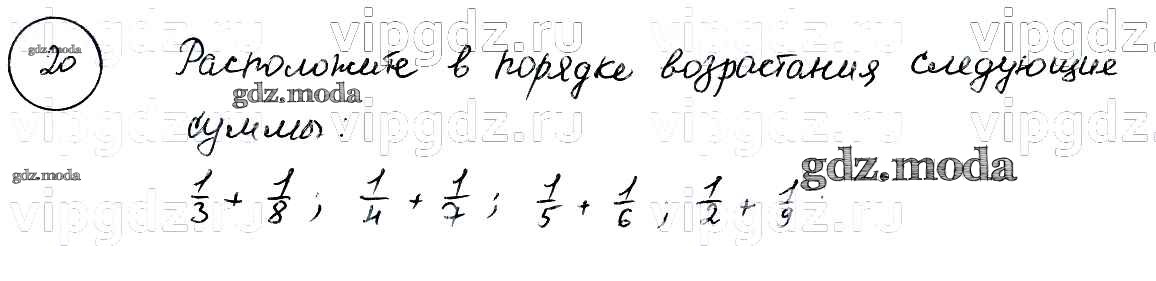 vipgdz.ru vipgdz.ru vipgdz.ru vipgdz.ru
gdz.moda
20 Расположите в порядке возрастания следующие
gdz.moda
суммы:
vipgdz.ru vipgdz.ru vipgdz.ru vipgdz.ru
gdz.moda
gdz.moda
1/3 + 1/8 ; 1/4 + 1/7 ; 1/5 + 1/6 ; 1/2 + 1/9
vipgdz.ru vipgdz.ru vipgdz.ru vipgdz.ru